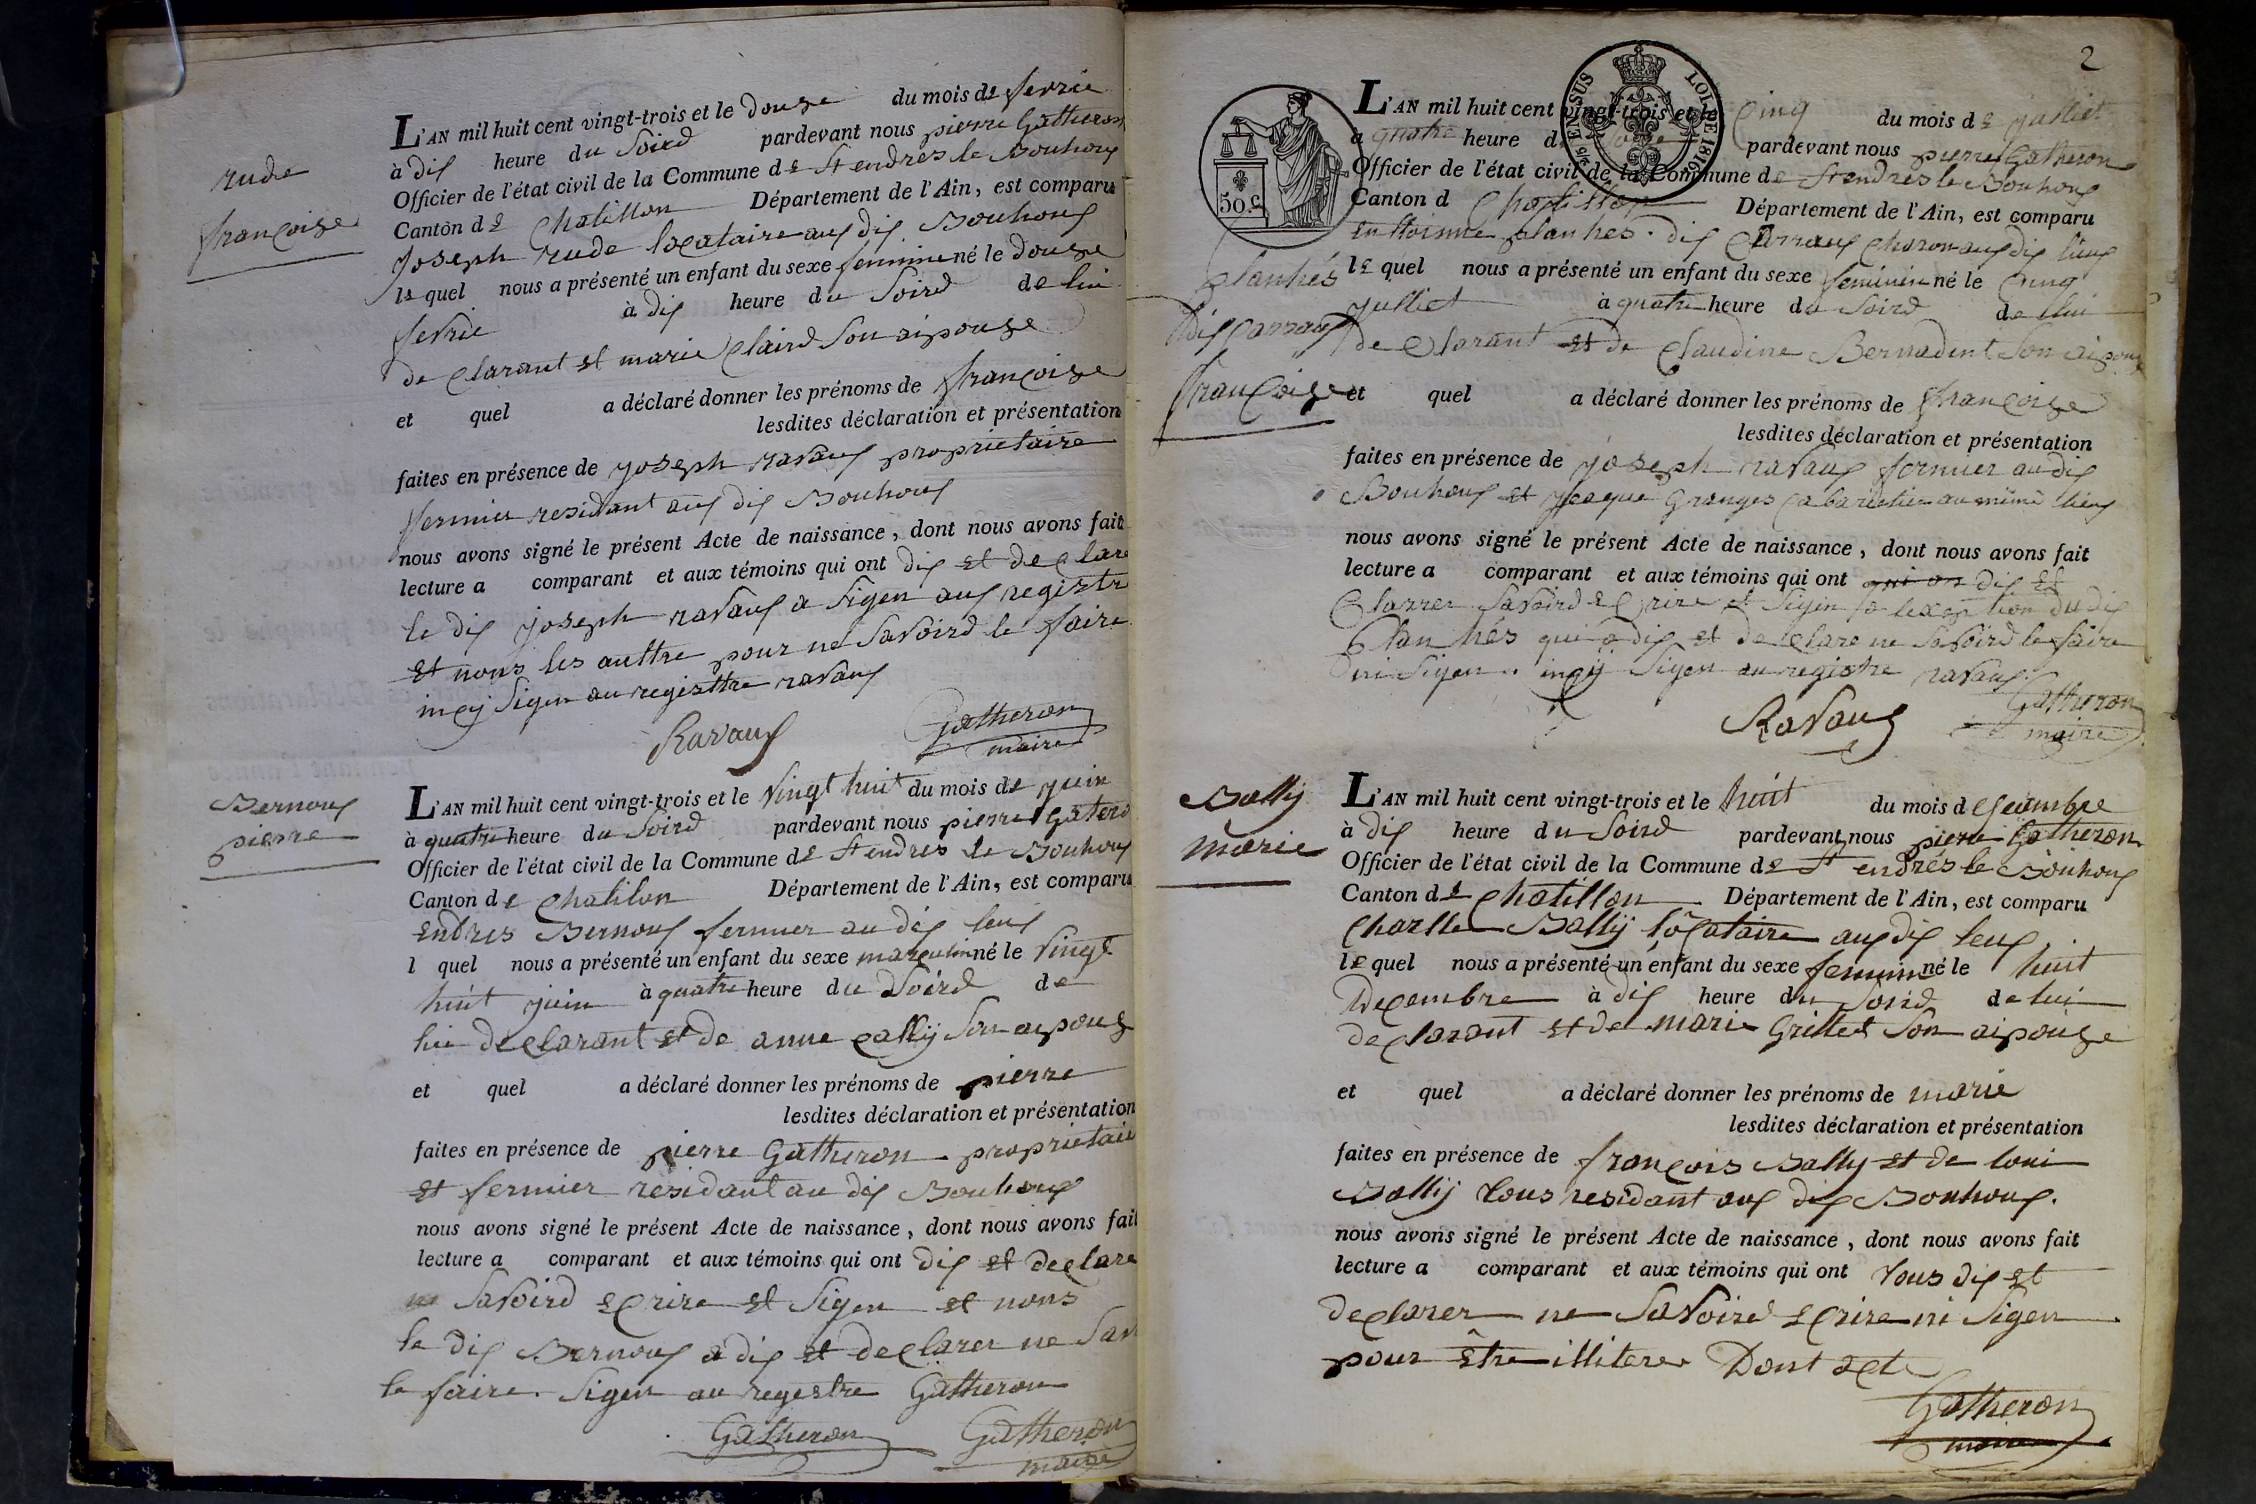 rude
françoise
L'AN mil huit cent vingt-trois et le douze du mois de fevrie
à dix heure du Soird pardevant nous pierre Gatheron
Officier de l'état civil de la Commune de St endres le Bouhoux
Canton de Chatillon Département de l'Ain, est comparu
Joseph rude locataire aux dix Bouhoux
le quel nous a présenté un enfant du sexe feminine né le douze
fevrie à dix heure du Soird de lui
declarant et marie Claird Son aipouze
et quel a déclaré donner les prénoms de françoise
lesdites déclaration et présentation
faites en présence de joseph ravaux proprietaire
fermier residant aux dix Bouhoux
nous avons signé le présent Acte de naissance, dont nous avons fait
lecture a comparant et aux témoins qui ont dix et declare
le dix joseph ravaux a Sigen aux registr
et nous les aultre pour ne Savoird le faire
incy Sigen au registtre ravaux
Ravaux Gatheron
maire
Bernoux
pierre
L'AN mil huit cent vingt-trois et le vingt huit du mois de juin
à quatre heure du Soird pardevant nous pierre Gatero
Officier de l'état civil de la Commune de St endres le Bouhoux
Canton de Chatilon Département de l'Ain, est comparu
Endres Bernoux fermier au dix leux
l quel nous a présenté un enfant du sexe masculin né le vingt
huit juin à quatre heure du Soird de
lui declarant et de anne Cally Son aipouze
et quel a déclaré donner les prénoms de pierre
lesdites déclaration et présentation
faites en présence de pierre Gatheron proprietaie
et fermier residant au dix Bouhoux
nous avons signé le présent Acte de naissance, dont nous avons fait
lecture a comparant et aux témoins qui ont dix et declare
ne Savoird ecrire et Sigen et nous
le dix Bernoux a dix et declarer ne Sav
le faire. Sigen au regestre Gatheron
Gatheron Gatheron
maire
2
50 c
5/6 EN SUS LOI DE 1816
L'AN mil huit cent vingt-trois et le Cinq du mois de julliet
à quatre heure d pardevant nous pierre Gatheron
Officier de l'état civil de la Commune de St endres le Bouhoux
Canton d Chatillon Département de l'Ain, est comparu
Enttoinne planhes dix Carraux charon aux dix lieux
planhés
dix Carraux
françoise
le quel nous a présenté un enfant du sexe feminin né le Cinq
julliet à quatre heure du Soird de lui
declarant et de Claudine Bernadent Son aipouz
et quel a déclaré donner les prénoms de françoise
lesdites déclaration et présentation
faites en présence de joseph ravaux fermier au dix
Bouhoux et jacque Granges Cabaretier au même lieux
nous avons signé le présent Acte de naissance, dont nous avons fait
lecture a comparant et aux témoins qui ont qui on dix et
Clarrer Savoird ecrire et Sigen a lexeption du dix
planhés qui a dix et declare ne Savoird le faire
ni Sigen. incy Sigen au registre ravaux.
Ravaux Gatheron
maire
Bally
marie
L'AN mil huit cent vingt-trois et le huit du mois de Cembre
à dix heure du Soird pardevant nous pierre Gatheron
Officier de l'état civil de la Commune de St endrés le Bouhoux
Canton de Chatillon Département de l'Ain, est comparu
Charlle Bally locataire aux dix leux
le quel nous a présenté un enfant du sexe feminin né le huit
Decembre à dix heure du Soird de lui
declarant et de marie Grillet Son aipouze
et quel a déclaré donner les prénoms de marie
lesdites déclaration et présentation
faites en présence de françois Bally et de loui
Bally tous residant aux dix Bouhoux.
nous avons signé le présent Acte de naissance, dont nous avons fait
lecture a comparant et aux témoins qui ont tous dix et
declarer ne Savoird ecrire ni Sigen
pour être illitere Dont acte
Gatheron
maire